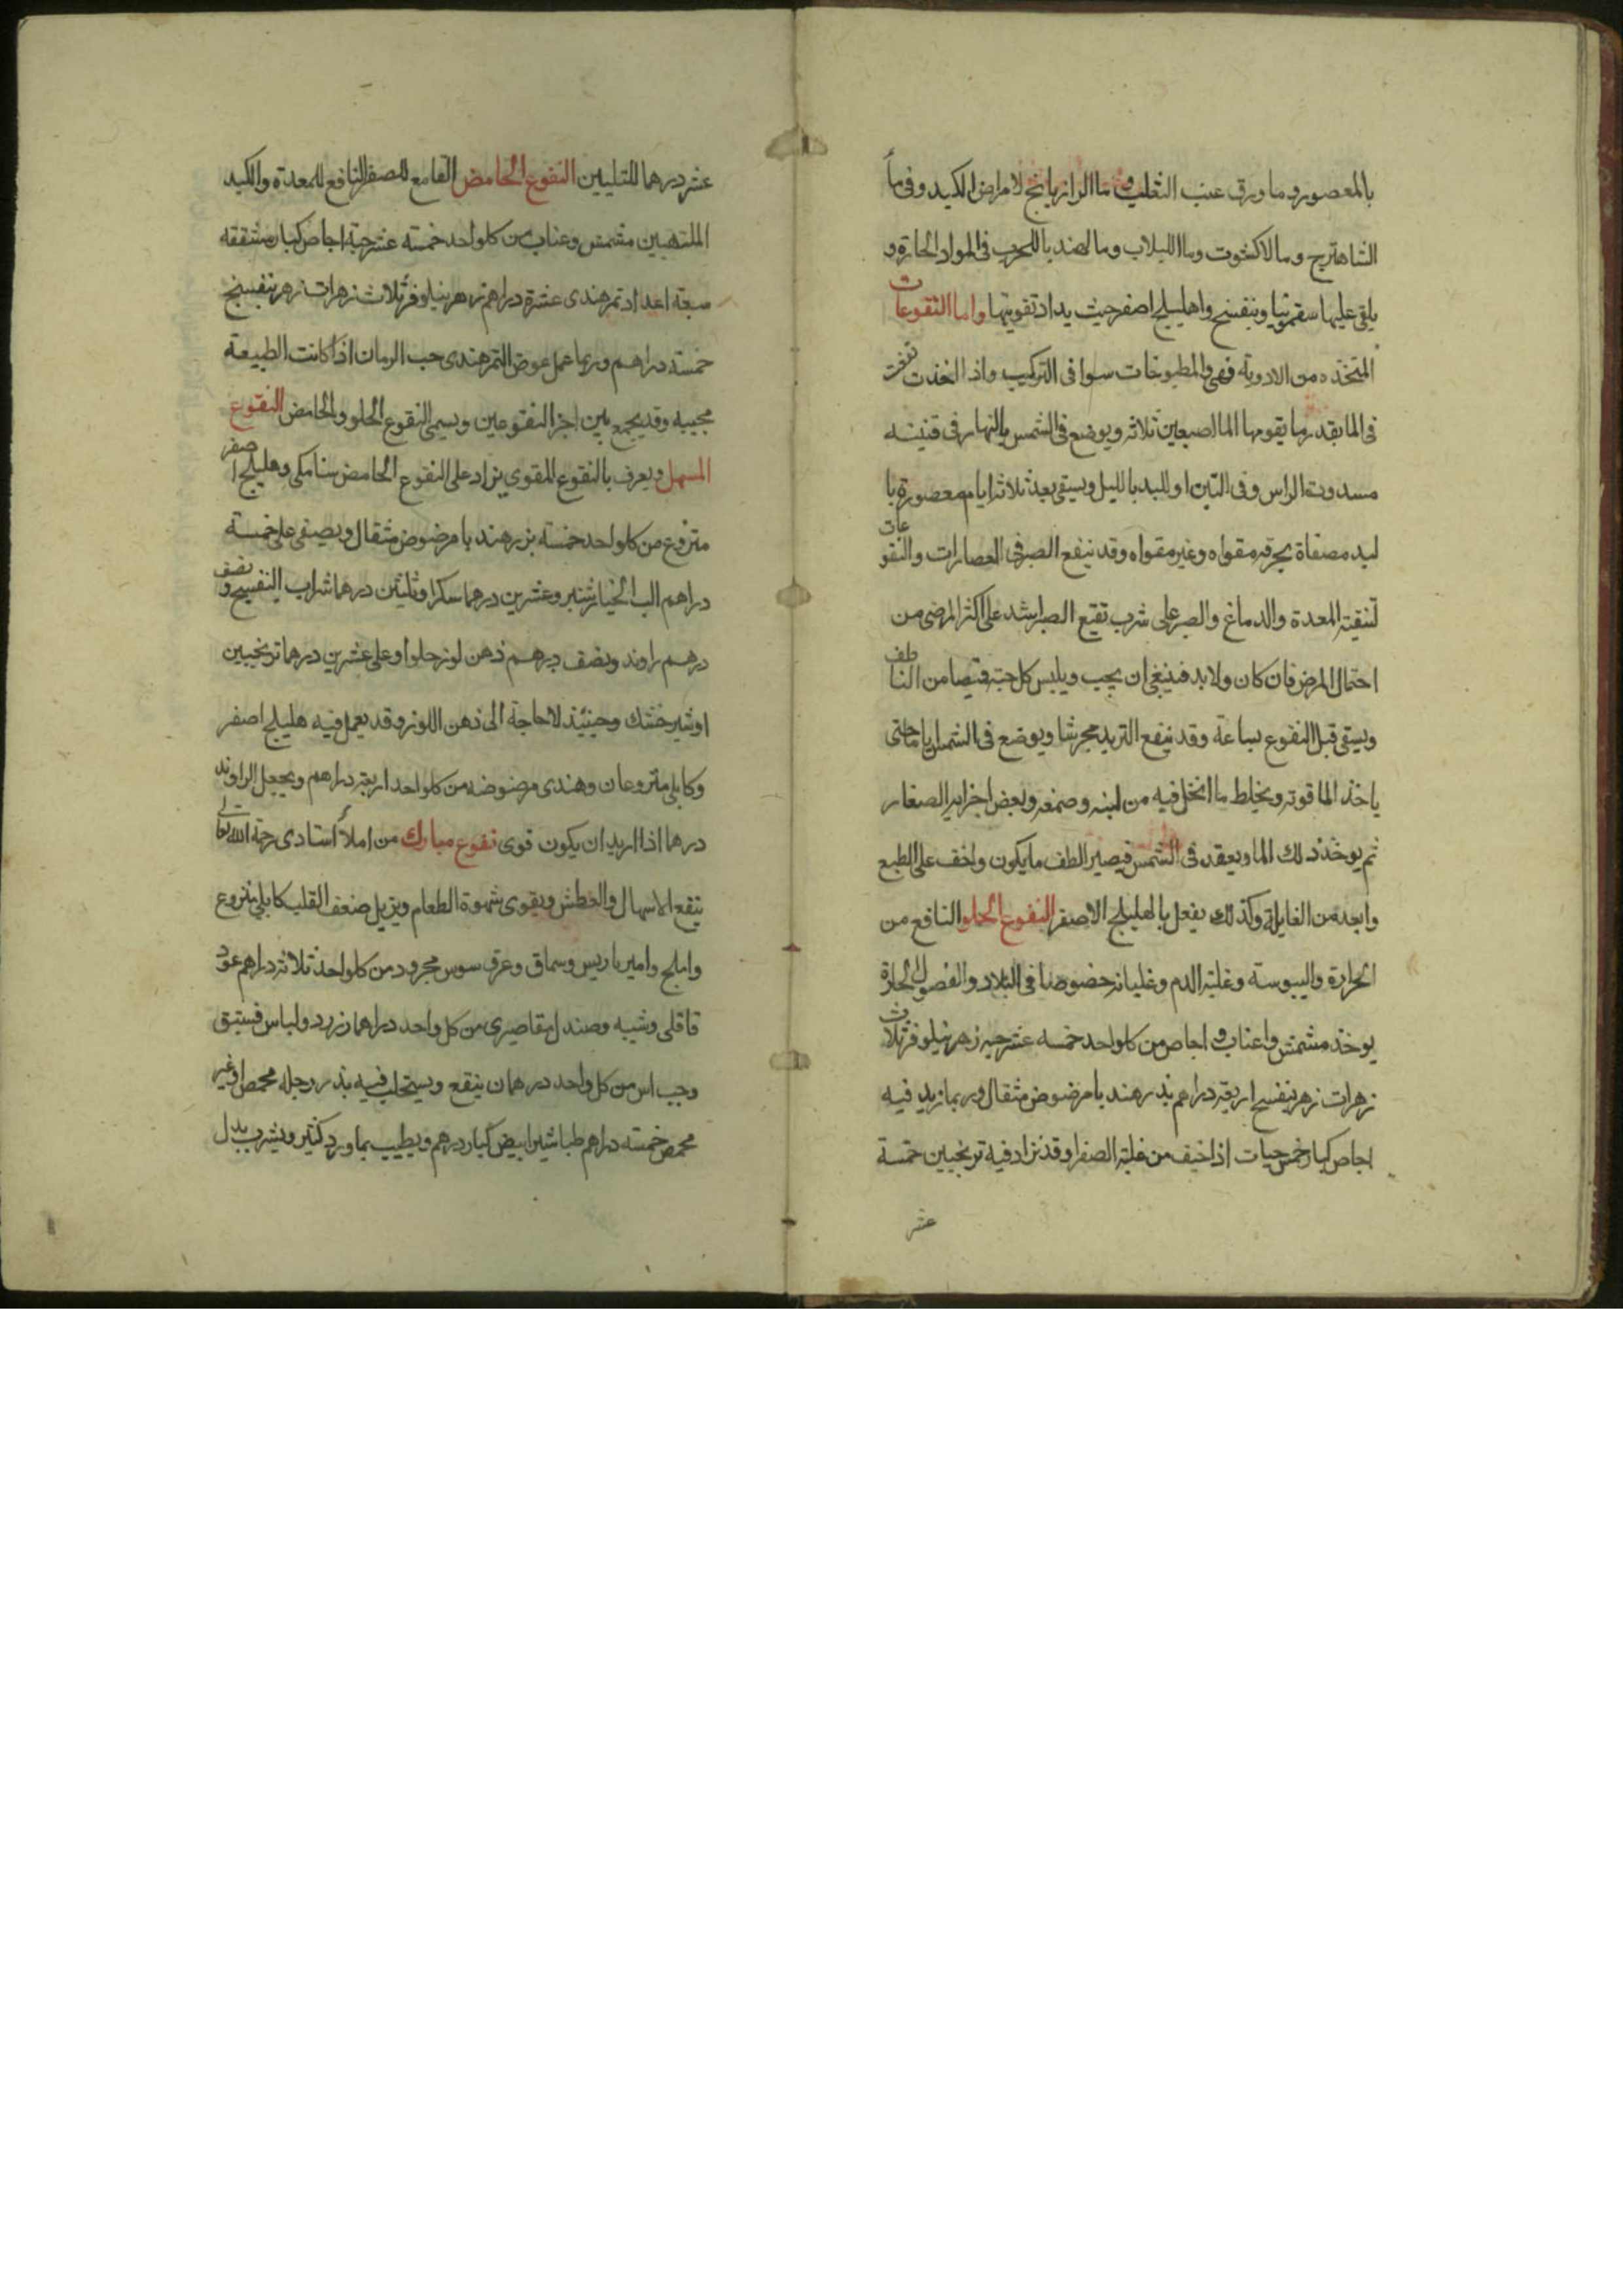 بالمعصور وما ورق عنب الثعلب وما الرازيانج لامراض الكبد وفى ما
الشاهترج وما الاكشوت وما اللبلاب وما الهندبا للحرب فى المواد الحارة و
يلقى عليها سقمونيا وبنفسج واهليلج اصفر حيث يداد تقويتها واما النقوعات
المتخذه من الادوية فهى والمطبوخات سوا فى التركيب واذا اتخذت نقعت
فى الما بقدر ما يقومها الما اصبعين ثلاثه ويوضع فى الشمس بالنهار فى قنينه
مسدودت الراس وفى التبن او اللبد بالليل ويسقى بعد ثلاثه ايام معصورة با
ليد مصفاة بحرقه مقواه وغير مقواه وقد ينفع الصبر فى العصارات والنقوعات
لتنقية المعدة والدماغ والصبر على شرب نقيع الصبر اشد على اكثر المرضى من
احتمال المرض فان كان ولابد فينبغى ان يحبب ويلبس كل حبة قميصا من الناطف
ويسقى قبل النقوع بساعة وقد ينقع التربد مجرشا ويوضع فى الشمس اياما حتى
ياخذ الما قوته ويخلط ما انحل فيه من لبنه وصمغه وبعض اجزايه الصغار
ثم يوخذ ذلك الما ويعقد فى الشمس فيصير الطف ما يكون واخف على الطبع
وابعد من الغايلة وكذلك يفعل بالهليلج الاصفر النقوع الحلو النافع من
الحرارة واليبوسة وغلبة الدم وغليانه خصوصا فى البلاد والفصول الحارة
يوخذ مشمش واعناب و اجاص من كلواحد خمسه عشر حبه زهر نيلوفر ثلاث
زهرات زهر بنفسج اربعة دراهم بذر هندبا مرضوض مثقال وربما زيد فيه
اجاص كبار خمس حبات اذا خيف من غلبة الصفرا وقد نزاد فيه ترنجبين خمسة
عشر
عشر درهما للتليين النقوع الحامض القامع للصفرا النافع للمعدة والكبد
الملتهبين مشمش وعناب من كلواحد خمسته عشر حبة اجاص كبار مشققه
سبعة اعداد تمر هندى عشرة دراهم زهر نيلوفر ثلاث زهرات زهر بنفسج
خمسته دراهم وربما عمل عوض التمر هندى حب الرمان اذا كانت الطبيعة
مجيبه وقد يجمع بين اجزا النقوعين ويسمى النقوع الحلو والحامض النقوع
المسهل ويعرف بالنقوع المقوى يزاد على النقوع الحامض سنا مكى وهليلج اصفر
منزوع من كلواحد خمسته بزر هندبا مرضوض مثقال ويصفى على خمسة
دراهم الب الخيار شنبر وعشرين درهما سكرا وثلثين درهما شراب البنفسج ونصف
درهم راوند ونصف درهم دهن لوز حلو او على عشرين درهما ترنجبين
او شير خشك وحينئذ لا حاجة الى دهن اللوز وقد يعمل فيه هليلج اصفر
وكابلى منزوعان وهندى مرضوضه من كلواحد اربعة دراهم ويجعل الراوند
درهما اذا اريد ان يكون قوى نقوع مبارك من املأ استادى رحمة الله تعالى
ينفع الاسهال والعطش ويقوى شهوة الطعام ويزيل ضعف القلب كابلى منزوع
واملج وامير باريس وسماق وعرق سوس مجرود من كلواحد ثلاثه دراهم عود
قاقلى وشيبه وصندل مقاصيرى من كل واحد دراهما زر ورد ولباس فستق
وحب اس من كل واحد درهمان ينقع ويستحلب فيه بذر رجله محمص او غير
محمص خمسته دراهم طباشير ابيض كبار درهم ويطيب بماورد كثير ويشرب بدل